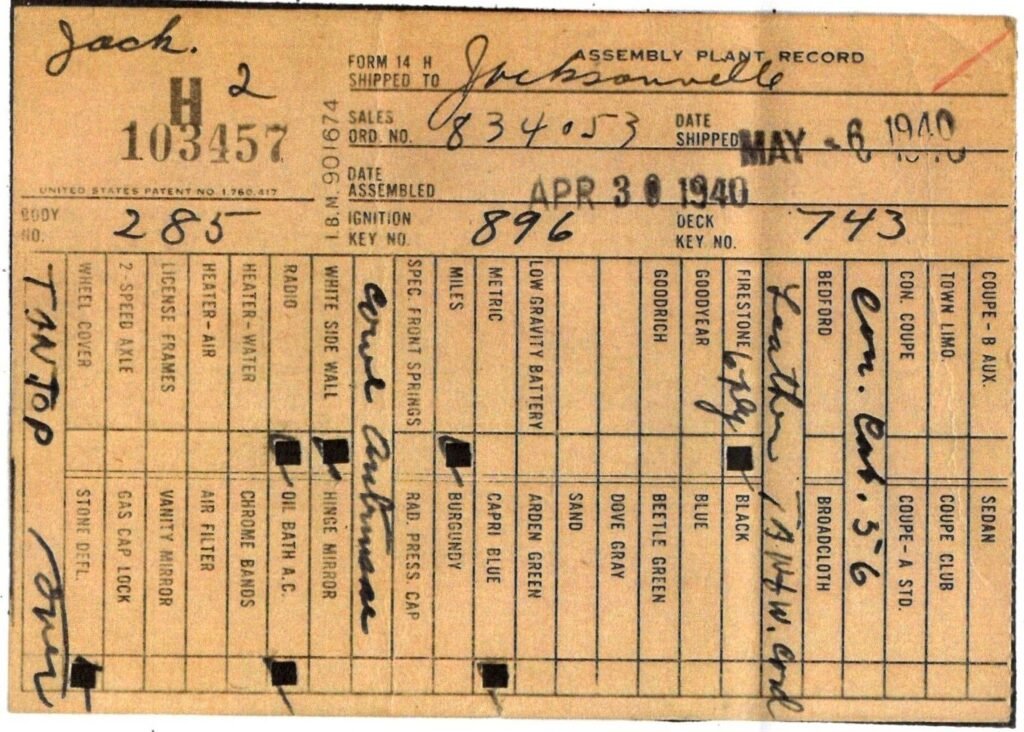 Jack.
H 2
103457
UNITED STATES PATENT NO. 1,760,417
BODY NO. 285
I.B.M. 901674
ASSEMBLY PLANT RECORD
FORM 14 H
SHIPPED TO Jacksonville
SALES ORD. NO. 834053
DATE SHIPPED MAY -6 1940
DATE ASSEMBLED APR 30 1940
IGNITION KEY NO. 896
DECK KEY NO. 743
COUPE-B AUX. SEDAN
TOWN LIMO. COUPE CLUB
CON. COUPE COUPE-A STD.
Con. Cab. 56
BEDFORD BROADCLOTH
Leather TAN W. Cord
FIRESTONE 6 ply BLACK
GOODYEAR BLUE
GOODRICH BEETLE GREEN
DOVE GRAY
SAND
LOW GRAVITY BATTERY ARDEN GREEN
METRIC CAPRI BLUE
MILES BURGUNDY
SPEC. FRONT SPRINGS RAD. PRESS. CAP
Cowl Antennae
WHITE SIDE WALL HINGE MIRROR
RADIO OIL BATH A.C.
HEATER-WATER CHROME BANDS
HEATER-AIR AIR FILTER
LICENSE FRAMES VANITY MIRROR
2 SPEED AXLE GAS CAP LOCK
WHEEL COVER STONE DEFL.
TAN TOP over